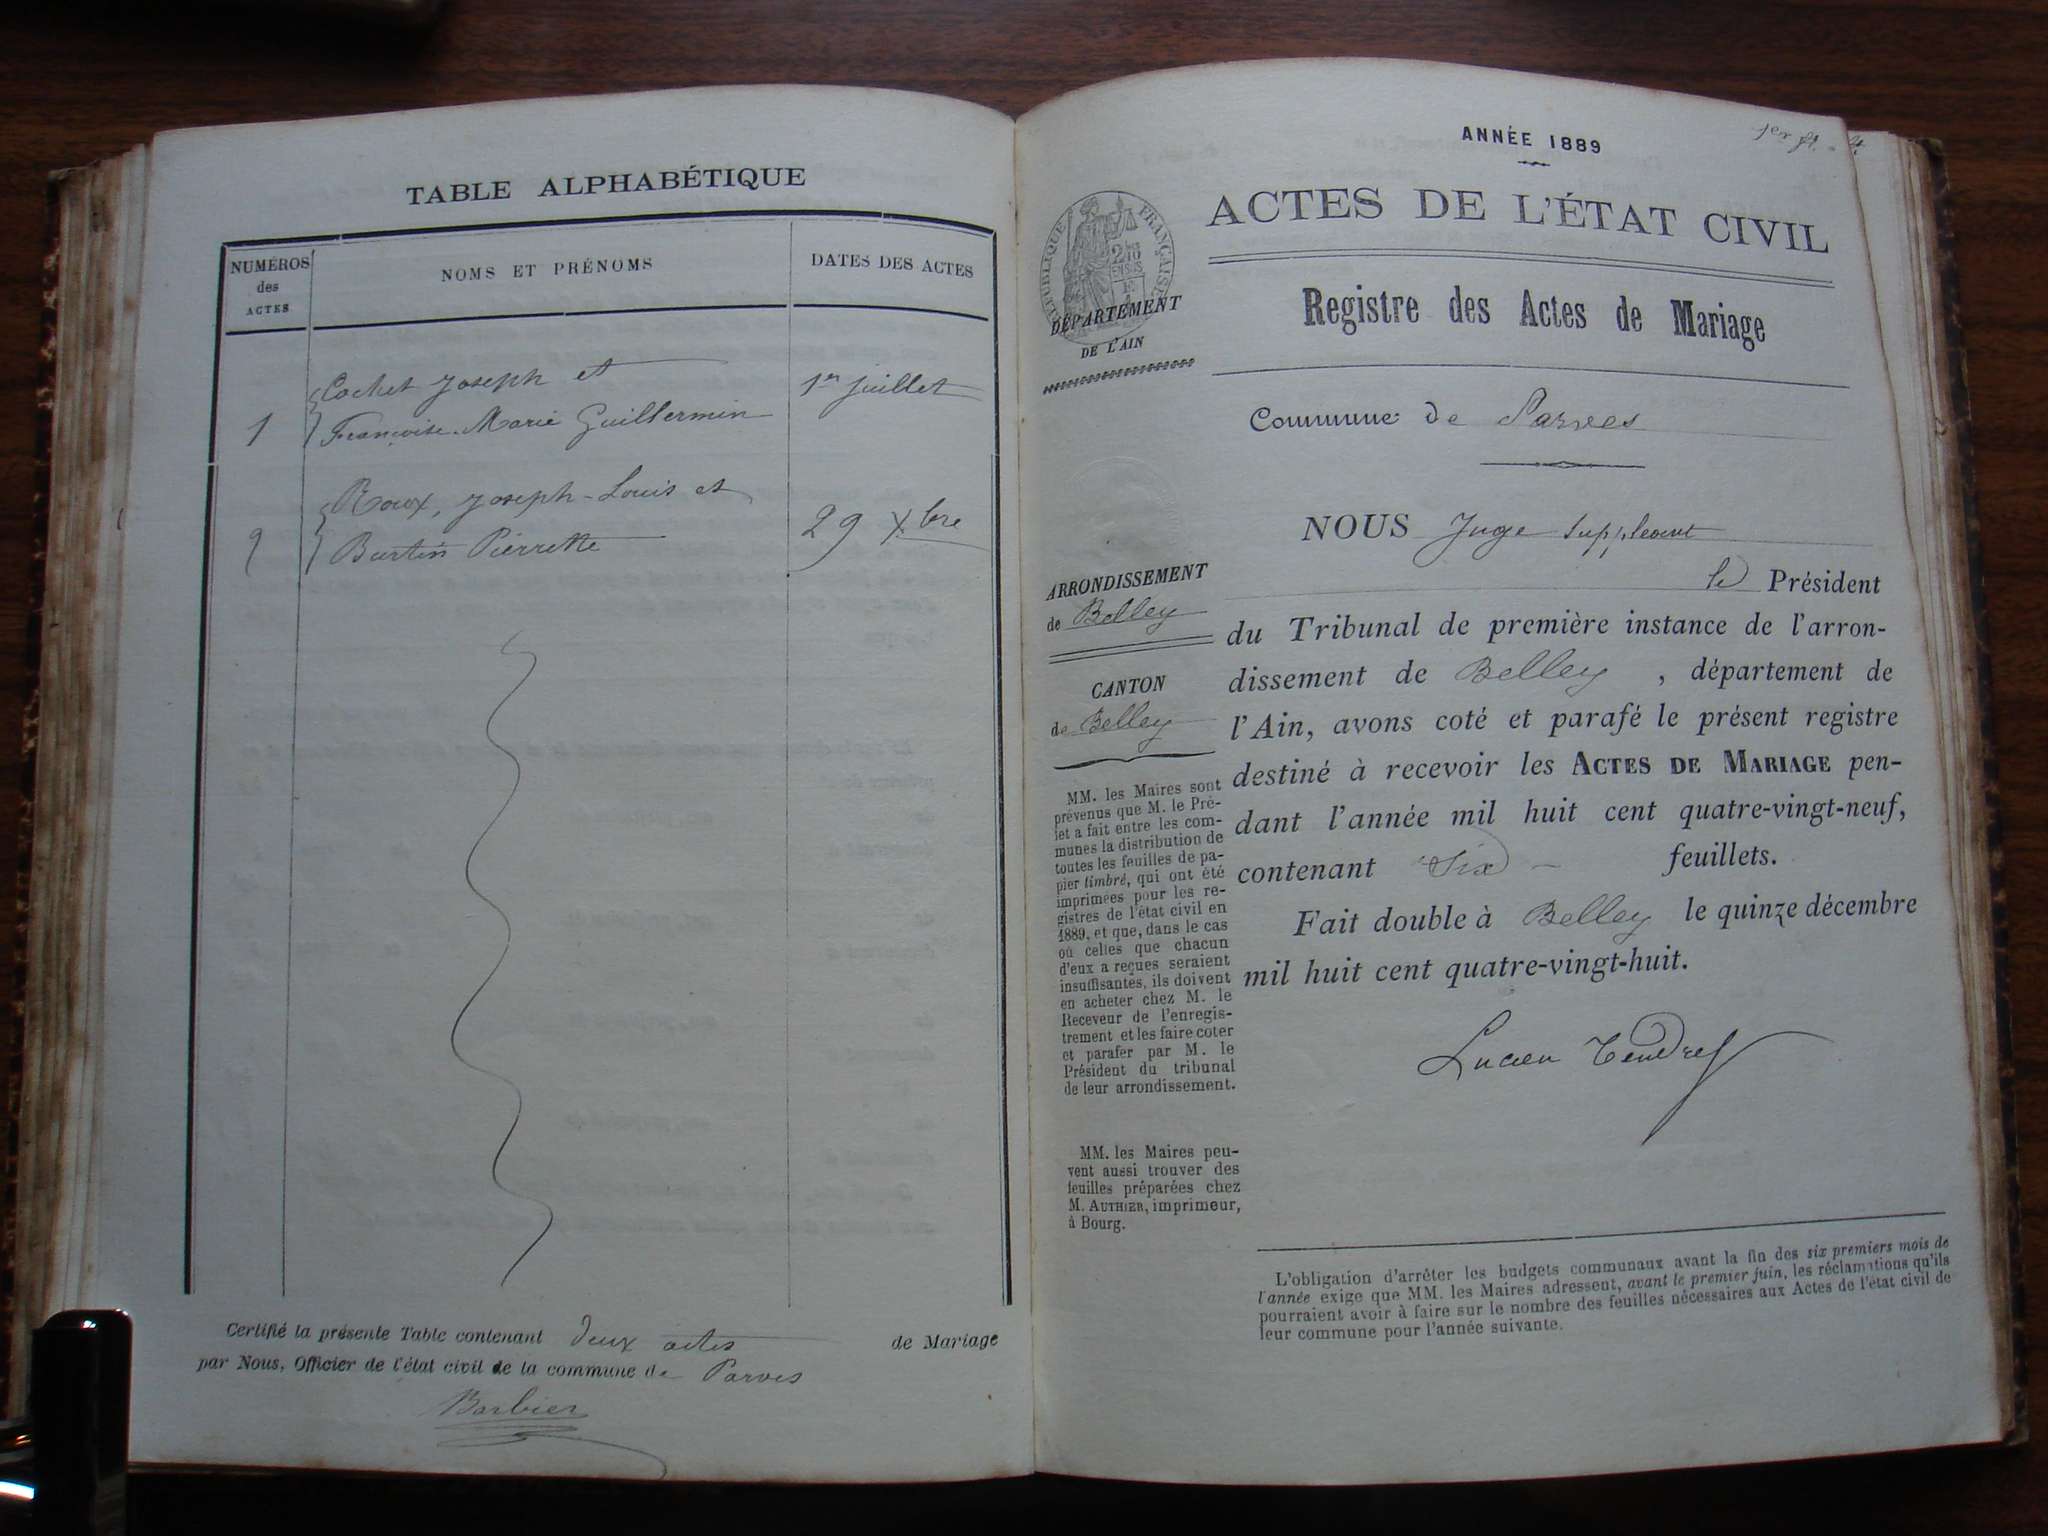 TABLE ALPHABÉTIQUE
NUMÉROS des ACTES
NOMS ET PRÉNOMS
DATES DES ACTES
1
Cochet Joseph et
1er juillet
Françoise-Marie Guillermin
2
Roux, Joseph-Louis et
29 Xbre
Burtin Pierrette
Certifié la présente Table contenant deux actes de Mariage
par Nous, Officier de l'état civil de la commune de Parves
Barbier
ANNÉE 1889
ACTES DE L'ÉTAT CIVIL
RÉPUBLIQUE FRANÇAISE
DÉPARTEMENT
DE L'AIN
Registre des Actes de Mariage
Commune de Parves
NOUS Juge Suppléant
le Président
ARRONDISSEMENT
de Belley
CANTON
de Belley
du Tribunal de première instance de l'arron-
dissement de Belley, département de
l'Ain, avons coté et parafé le présent registre
destiné à recevoir les ACTES DE MARIAGE pen-
dant l'année mil huit cent quatre-vingt-neuf,
contenant Six feuillets.
Fait double à Belley le quinze décembre
mil huit cent quatre-vingt-huit.
Lucien Tendret
MM. les Maires sont
prévenus que M. le Pré-
fet a fait entre les com-
munes la distribution de
toutes les feuilles de pa-
pier timbré, qui ont été
imprimées pour les re-
gistres de l'état civil en
1889, et que, dans le cas
où celles que chacun
d'eux a reçues seraient
insuffisantes, ils doivent
en acheter chez M. le
Receveur de l'enregis-
trement et les faire coter
et parafer par M. le
Président du tribunal
de leur arrondissement.
MM. les Maires peu-
vent aussi trouver des
feuilles préparées chez
M. AUTHIER, imprimeur,
à Bourg.
L'obligation d'arrêter les budgets communaux avant la fin des six premiers mois de
l'année exige que MM. les Maires adressent, avant le premier juin, les réclamations qu'ils
pourraient avoir à faire sur le nombre des feuilles nécessaires aux Actes de l'état civil de
leur commune pour l'année suivante.